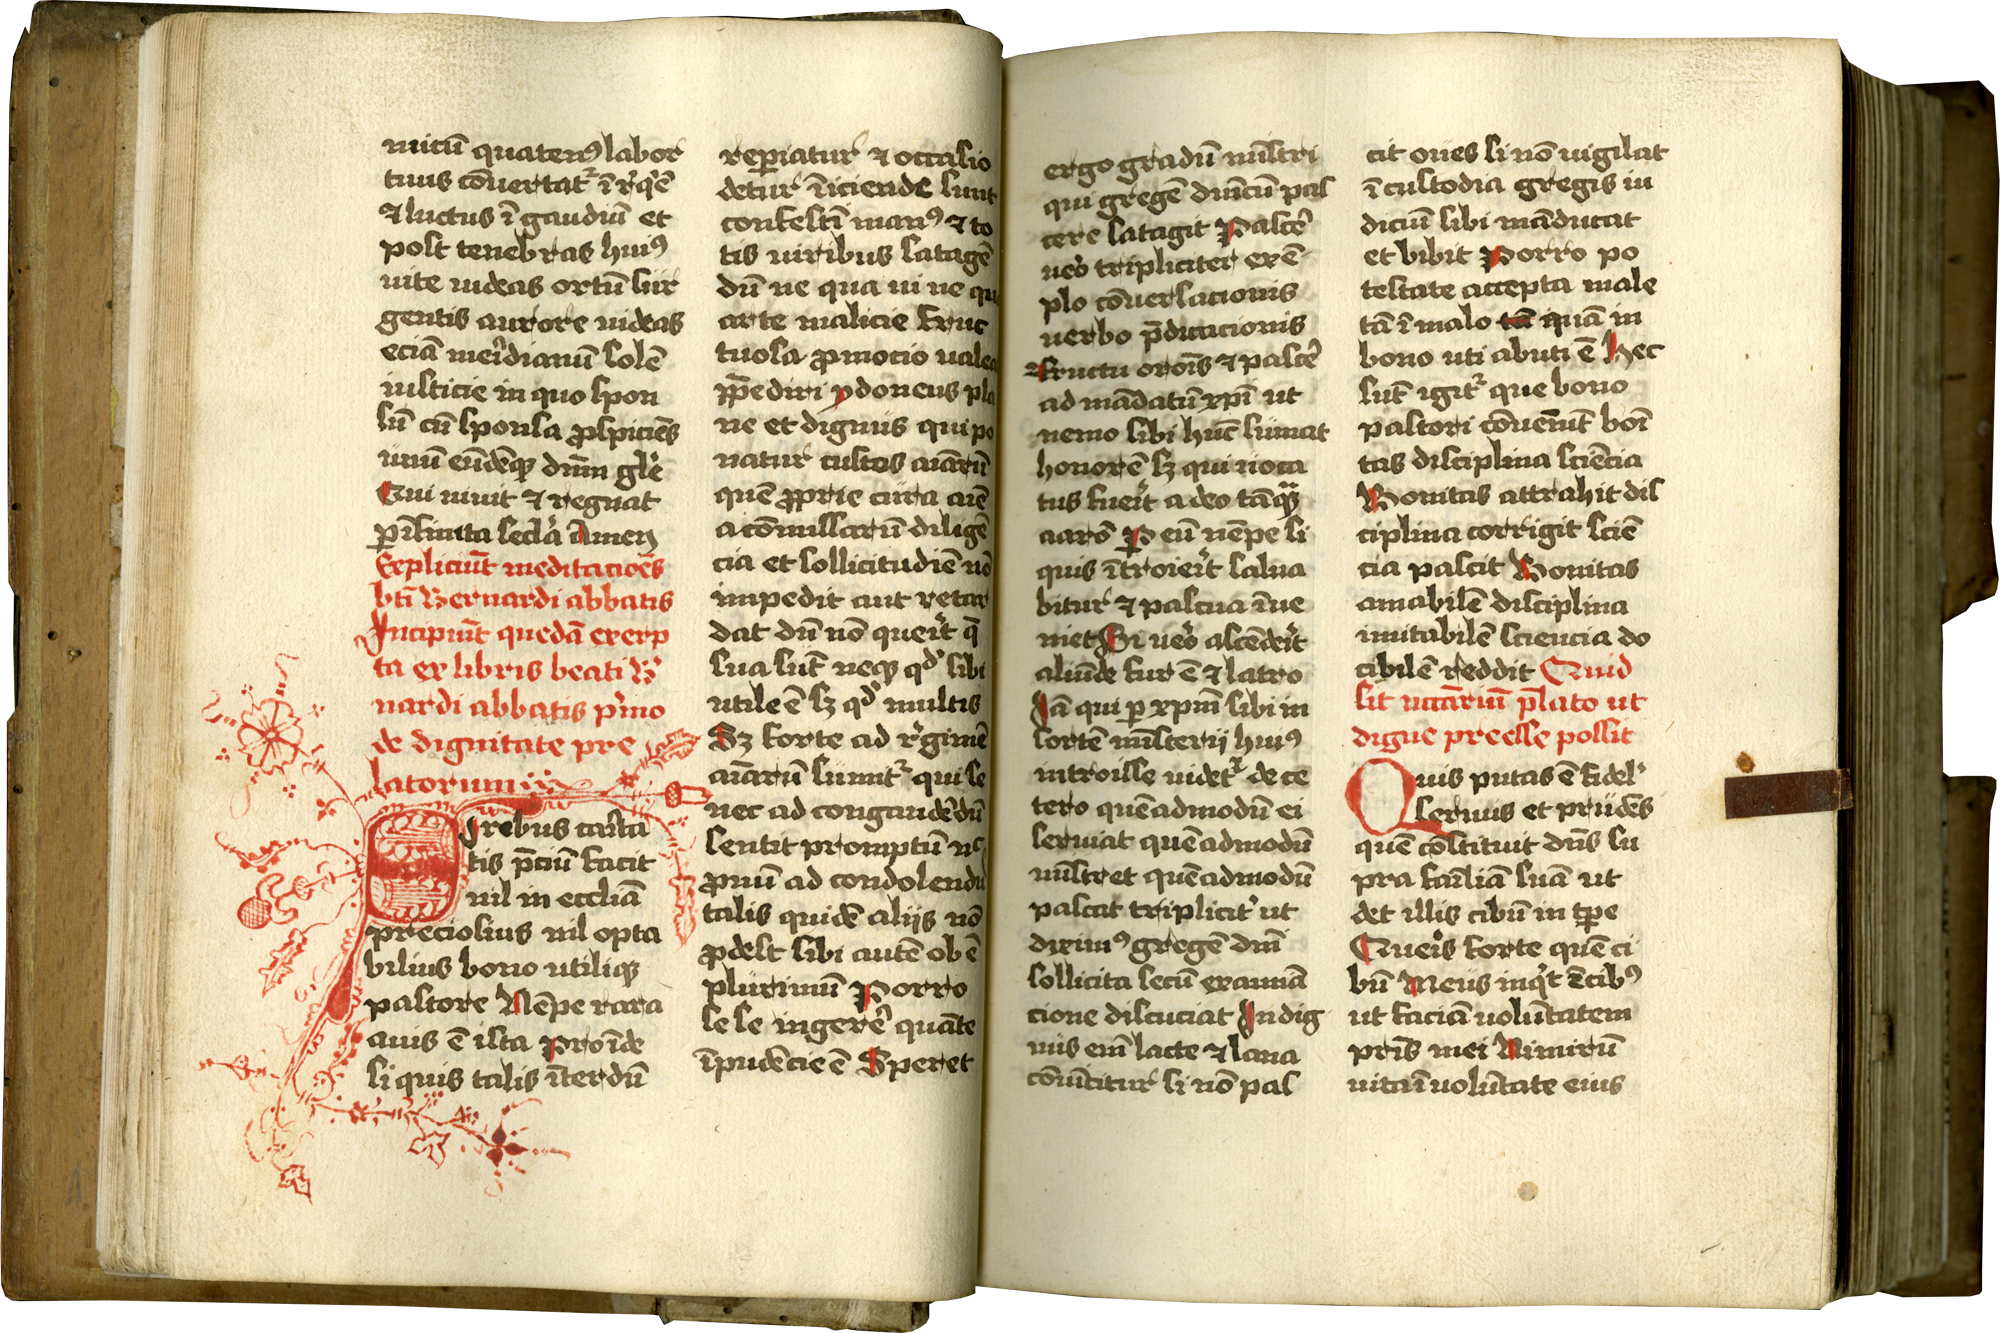 nutū quatenꝰ labor
tuus cōuertat᷑ ī rq̇ē
⁊ luctus ī gaudiū et
post tenebras huiꝰ
uite uideas ortū sur
gentis aurore uideas
eciā meridianū solē
iusticie in quo spon
sū cū sponsa ꝓspicies
unū eūdēqꝫ dnm̄ glīe
Qui uiuit ⁊ regnat
p īfinita secla Amen
Expliciūt meditacōes
bti Bernardi abbatis
Incipiūt quedā exerp
ta ex libris beati B̄
nardi abbatis pimo
de dignitate pre
latorum
Orebus carita
tis p̄ciū facit
nil in ecclīa
preciosius nil opta
bilius bono utiliqꝫ
pastore Nēpe rara
auis ē ista Proīde
si quis talis īterdū
reꝑiatur ⁊ occasio
detur īiciende sunt
confestī manꝰ ⁊ to
tis uiribus satagē
dū ne qua ui ne qua
arte malicie fruc
tuosa ꝓmocio ualea
p̄pediri ydoneus pla
ne et dignus qui po
natur custos aīarū
quē ꝓprie cura aīe
a cōmissarū diligē
cia et sollicitudīe nō
impedit aut retar
dat dū nō querit q̄
sua sūt neqꝫ qd̓ sibi
utile ē sꝫ qd̓ multis
Sꝫ forte ad rgimē
aīarū sumit᷑ qui se
nec ad congaudēdū
sentit promptū nec
ꝓnū ad condolendū
talis quidē aliis nō
ꝓdest sibi autē ob ē
plurimū Porro
se se ingerē quāte
īprudēcie ē Speret
ergo gradū mīstri
qui gregē dnīcū pas
cere satagit Pascē
uero tripliciter exē
plo cōuersacionis
uerbo p̄dicacionis
⁊ fructu oroīs ⁊ pascē
ad mādatū xp̄i ut
nemo sibi hūc sumat
honorē sꝫ qui uoca
tus fuerit a deo tāqꝫ
aarō P eū nēpe si
quis ītroierit salua
bitur ⁊ pascua īue
niet Si uero ascēderit
aliūde fur ē ⁊ latro
Iā qui ꝑ xp̄m sibi in
sortē mīsterij huiꝰ
introisse uidet᷑ de ce
tero quēadmodū ei
seruiat quēadmodū
mīstret quēadmodū
pascat triplicit̓ ut
diximꝰ gregē dnī
sollicita secū examīa
cione discuciat Indig
nus enī lacte ⁊ lana
cōuīcitur si nō pas
cit oues si nō uigilat
ī custodia gregis iu
diciū sibi māducat
et bibit Porro po
testate accepta male
tā ī malo quā in
bono uti abuti ē Hec
sūt igit᷑ que bono
pastori cōueniūt boī
tas disciplina sciēcia
Bonitas attrahit dis
ciplina corrigit sciē
cia pascit Bonitas
amabilē disciplina
imitabilē sciencia do
cibilē reddit Quid
sit nccārium p̄lato ut
digne preesse possit
Quis putas ē fidel̓
seruus et prudēs
quē cōstituit dn̄s su
pra famīliā suā ut
det illis cibū in tꝑe
Queris forte quē ci
bū Meus inqt ē cibꝰ
ut faciā uolūtatem
pr̄is mei Nimirū
uita ī uolūtate eius